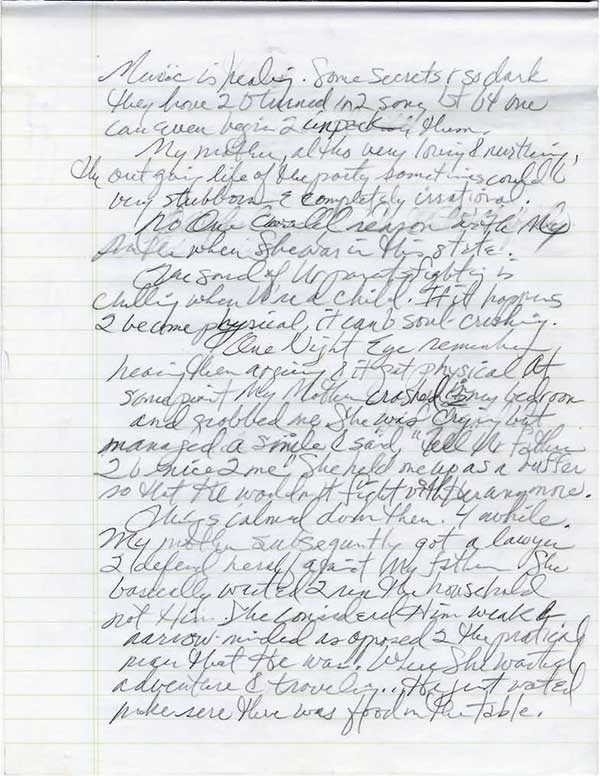 Music is healing. Some secrets r so dark
they have 2 b turned in2 song 1st b4 one
can even begin 2 unpack them.
My mother, altho very loving & nurturing,
the outgoing life of the party sometimes could b
very stubborn & completely irrational.
No One could reason with My
Mother when She was in this state.
The sound of Ur parents fighting is
chilling when U r a child. If it happens
2 become physical, it can b soul-crushing.
One Night Eye remember
hearing them arguing & it got physical. At
some point My Mother crashed in2 my bedroom
and grabbed me. She was crying but
managed a smile & said, "Tell Ur Father
2 b nice 2 me" She held me up as a buffer
so that He wouldn't fight with her anymore.
Things calmed down then. 4 awhile.
My mother subsequently got a lawyer
2 defend herself against My Father. She
basically wanted 2 run the household
not Him. She considered Him weak &
narrow-minded as opposed 2 the pratical
man that He was. Where She wanted
adventure & traveling... He just wanted
make sure there was food on the table.